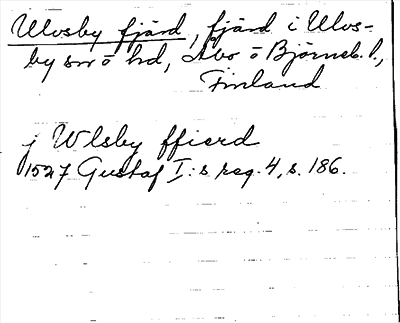 Ulvsby fjärd, fjärd i Ulvs-
by sn o hd, Åbo o Björneb. l.,
Finland
j Wlsby ffierd
1527 Gustaf I:s reg. 4, s. 186.